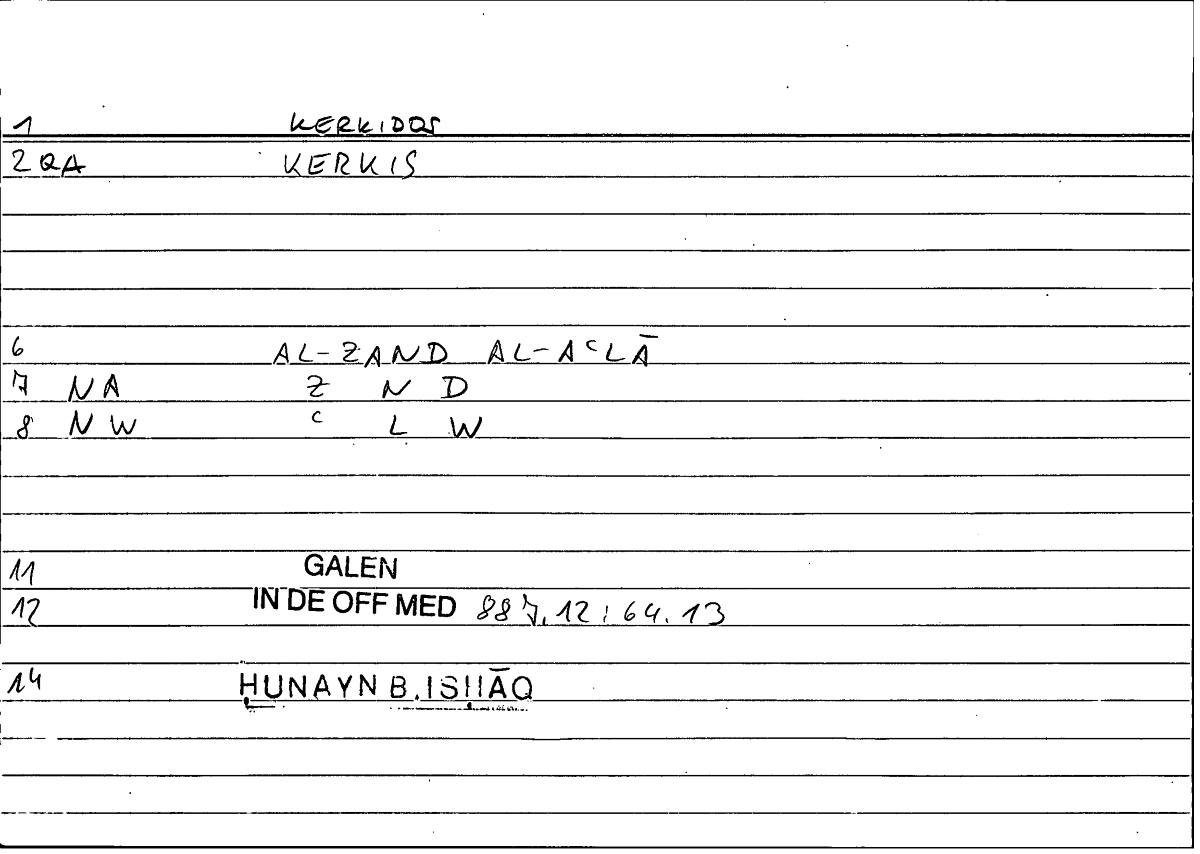 1 KERKIDOS
2 QA KERKIS
6 AL-ZAND AL-AᶜLĀ
7 NA Z N D
8 NW ᶜ L W
11 GALEN
12 IN DE OFF MED 887,12 : 64.13
14 ḤUNAYN B. ISḤĀQ